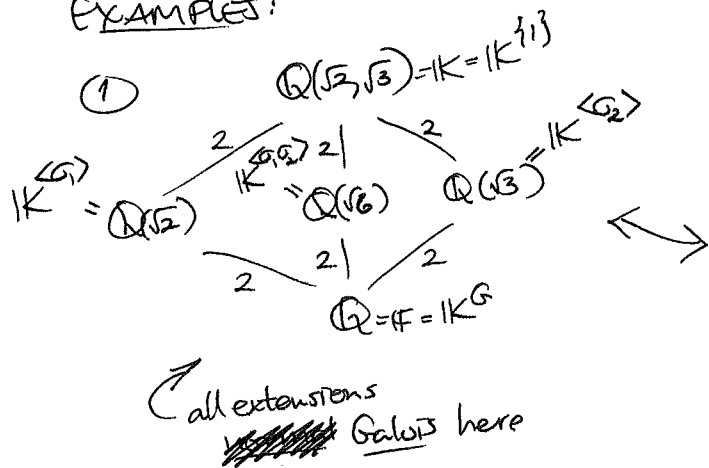 EXAMPLES:
①
Q(√2,√3)=K=K^{1}
2 2| 2
K^<σ₁> = Q(√2)
K^<σ₁σ₂> = Q(√6)
Q(√3) = K^<σ₂>
2 2| 2
Q=F=K^G
all extensions
Galois here